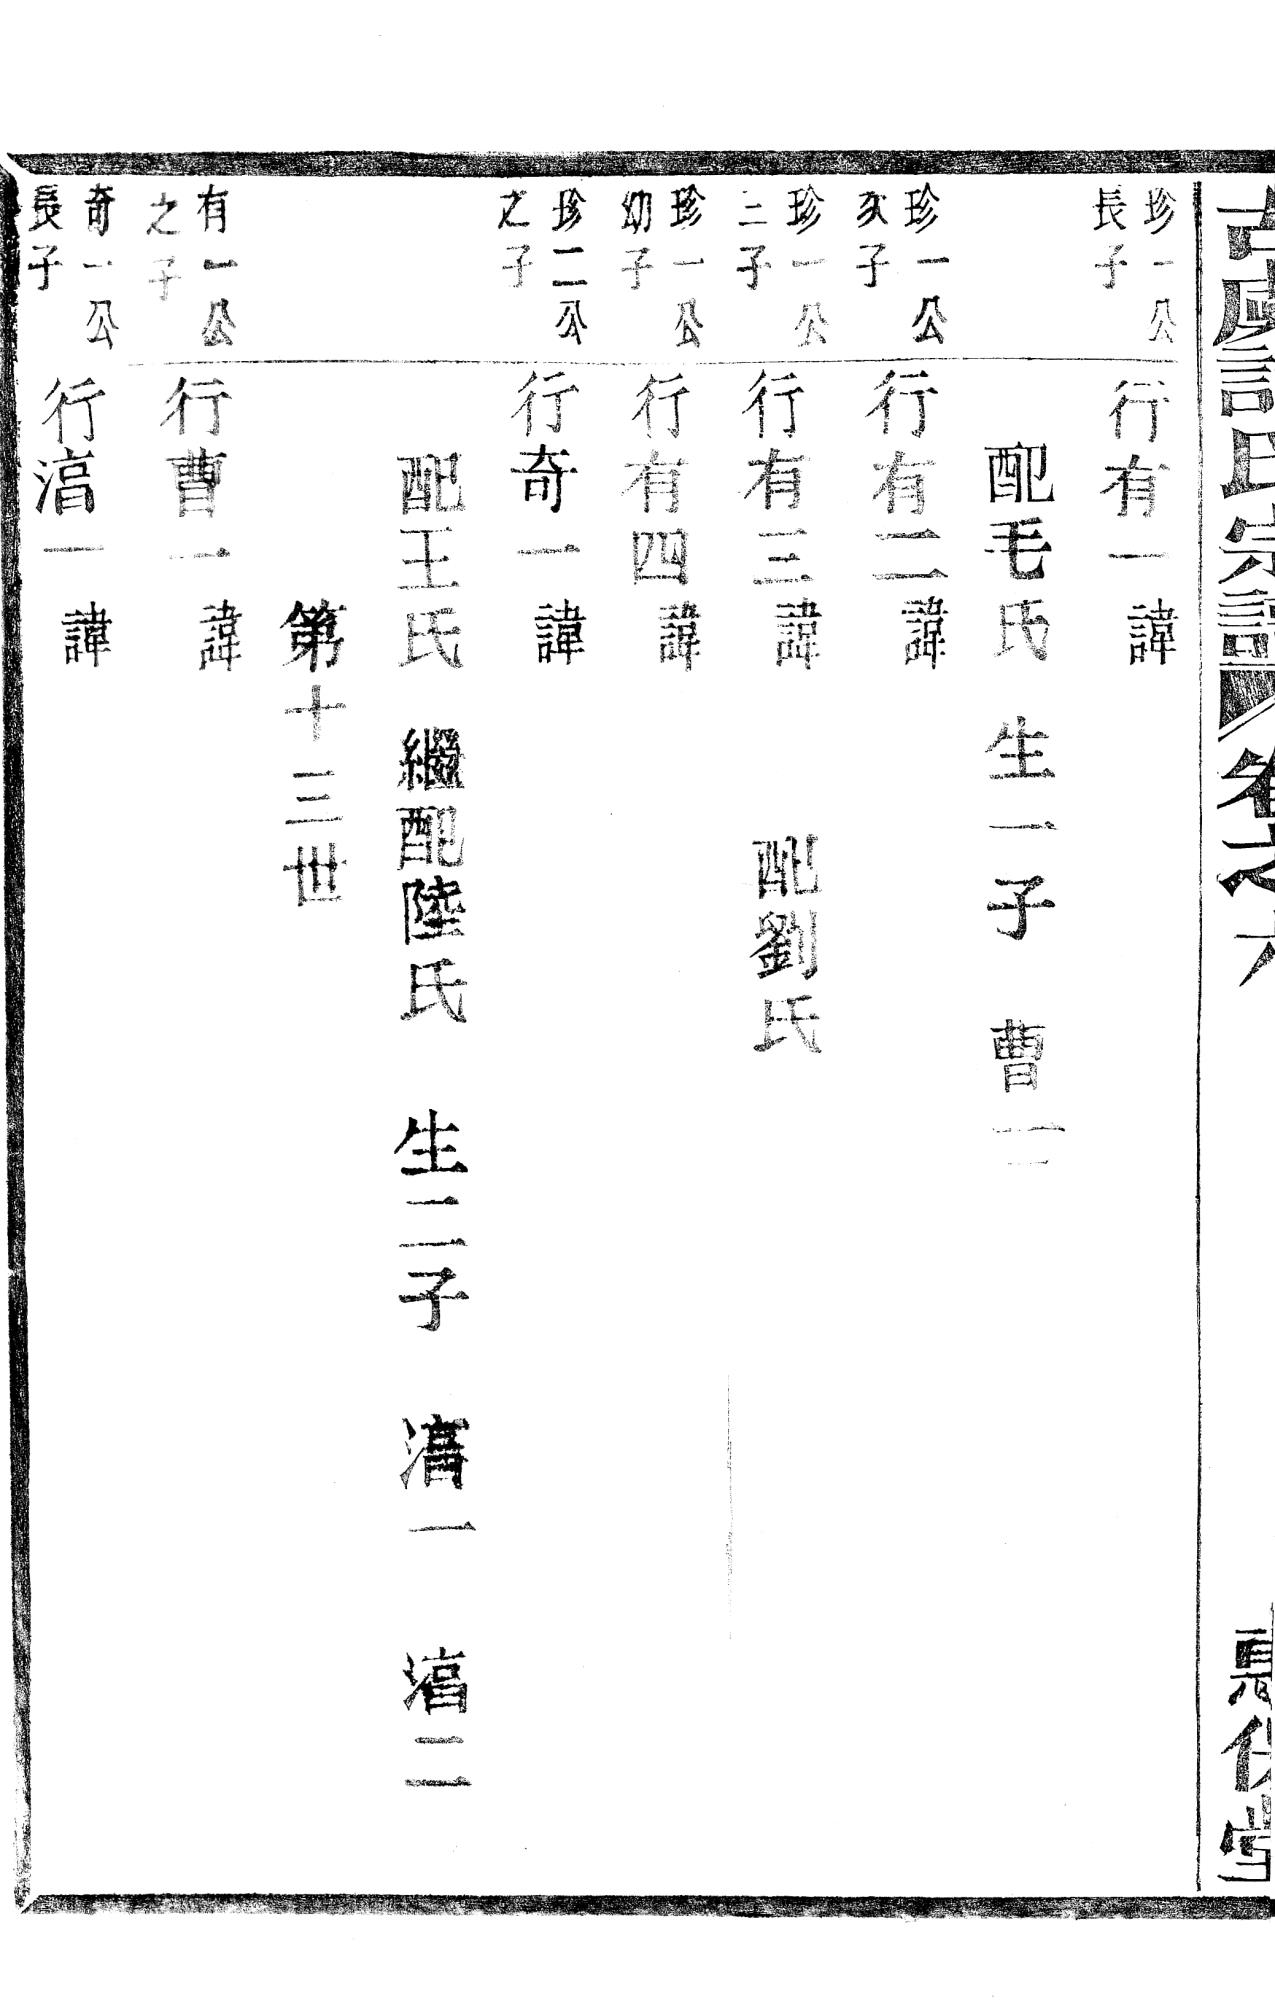 古虞許氏宗譜 卷之六 堂
珍一公
長子
行有一 諱
配毛氏 生一子 曹一
珍一公
次子
行有二 諱
珍一公
三子
行有三 諱 配劉氏
珍一公
幼子
行有四 諱
珍二公
之子
行奇一 諱
配王氏 繼配陸氏 生二子 湻一 湻二
第十三世
有一公
之子
行曹一 諱
奇一公
長子
行湻一 諱